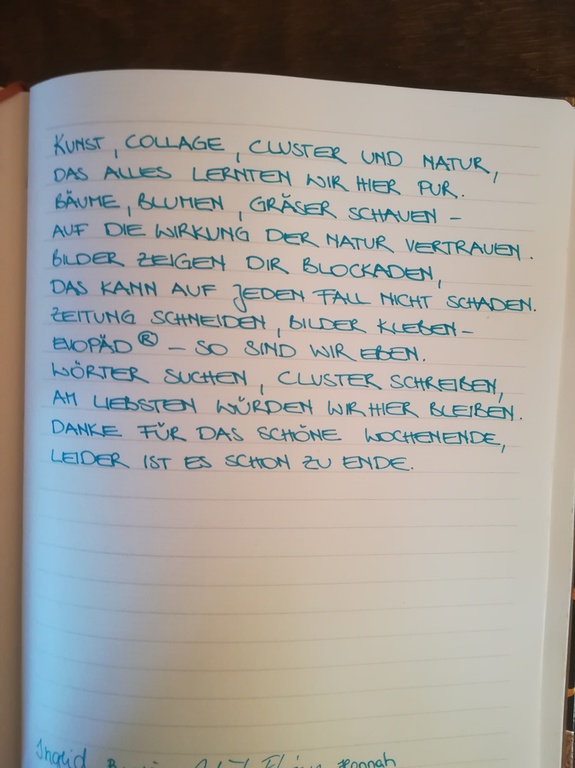 KUNST, COLLAGE, CLUSTER UND NATUR,
DAS ALLES LERNTEN WIR HIER PUR.
BÄUME, BLUMEN, GRÄSER SCHAUEN –
AUF DIE WIRKUNG DER NATUR VERTRAUEN.
BILDER ZEIGEN DIR BLOCKADEN,
DAS KANN AUF JEDEN FALL NICHT SCHADEN.
ZEITUNG SCHNEIDEN, BILDER KLEBEN –
EVOPÄD® – SO SIND WIR EBEN.
WÖRTER SUCHEN, CLUSTER SCHREIBEN,
AM LIEBSTEN WÜRDEN WIR HIER BLEIBEN.
DANKE FÜR DAS SCHÖNE WOCHENENDE,
LEIDER IST ES SCHON ZU ENDE.
Ingrid Hannah